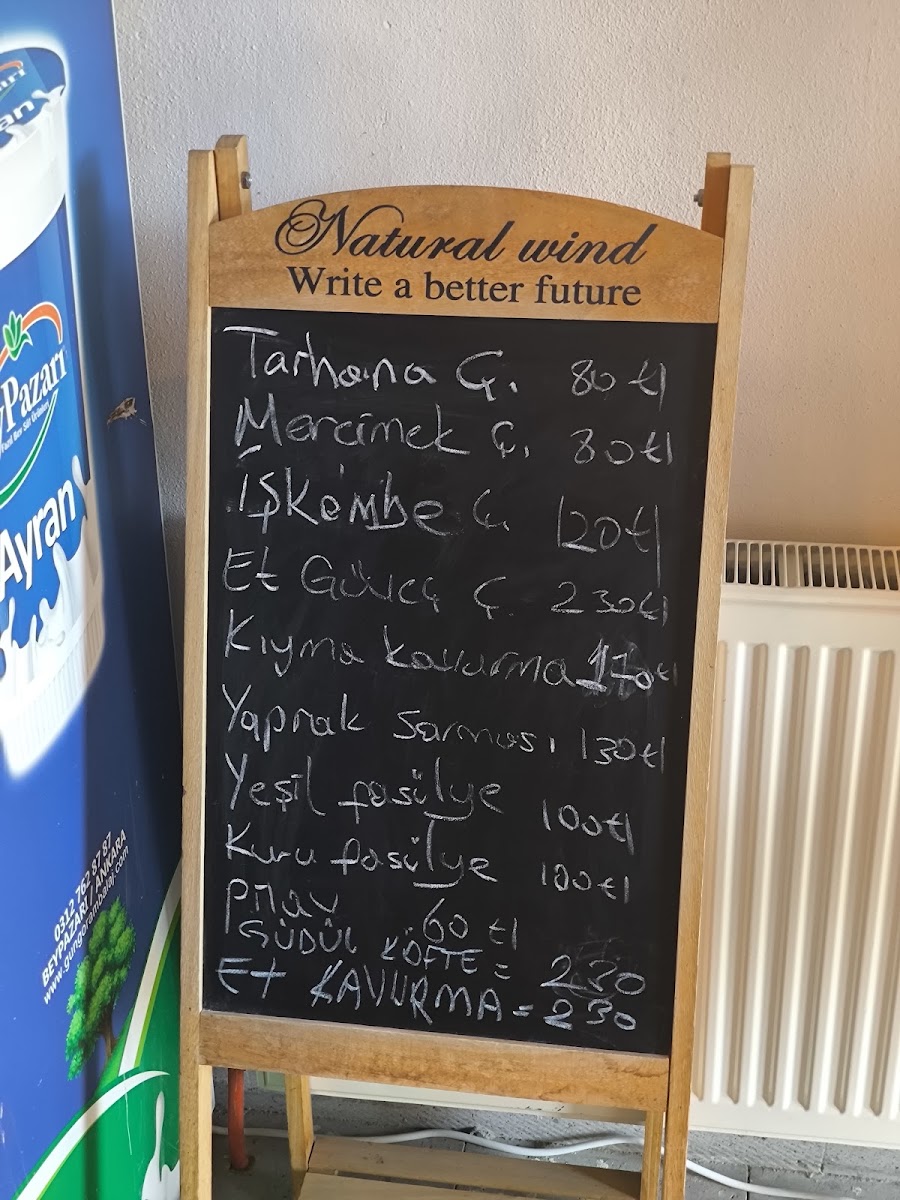 Natural wind
Write a better future
Tarhana Ç. 80 tl
Mercimek Ç. 80 tl
İşkembe Ç. 120 tl
Et Güveç Ç. 230 tl
Kıyma kavurma tl
Yaprak Sarması 130 tl
Yeşil fasülye 100 tl
Kuru fasülye 100 tl
Pilav 60 tl
GÜDÜL KÖFTE = 230
Et KAVURMA = 230
Pazarı
Ayran
0312 762 87 87
BEYPAZARI / ANKARA
www.gungorambalaj.com